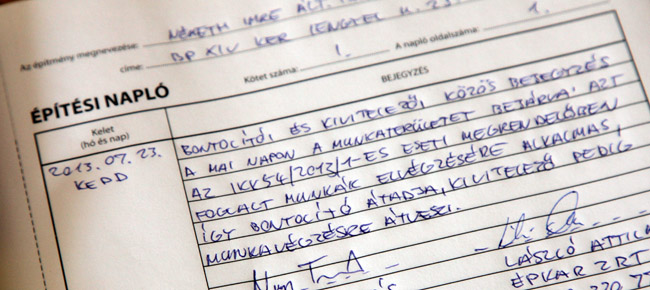 NÉMETH IMRE ÁLT.
Az építmény megnevezése:
címe: BP XIV KER LENGYEL U. 23.
Kötet száma: 1. A napló oldalszáma: 1.
ÉPÍTÉSI NAPLÓ
BEJEGYZÉS
Kelet
(hó és nap)
2013.07.23.
KEDD
BONTOCÍTÓI ÉS KIVITELEZŐI KÖZÖS BEJEGYZÉS
A MAI NAPON A MUNKATERÜLETET BEJÁRVA: AZT
AZ IKK54/2013/1-ES ESETI MEGRENDELŐBEN
FOGLALT MUNKÁK ELVÉGZÉSÉRE ALKALMAS,
ÍGY BONTOCÍTÓ ÁTADJA, KIVITELEZŐ PEDIG
MUNKAVÉGZÉSRE ÁTVESZI.
LÁSZLÓ ATTILA
ÉPKAR ZRT